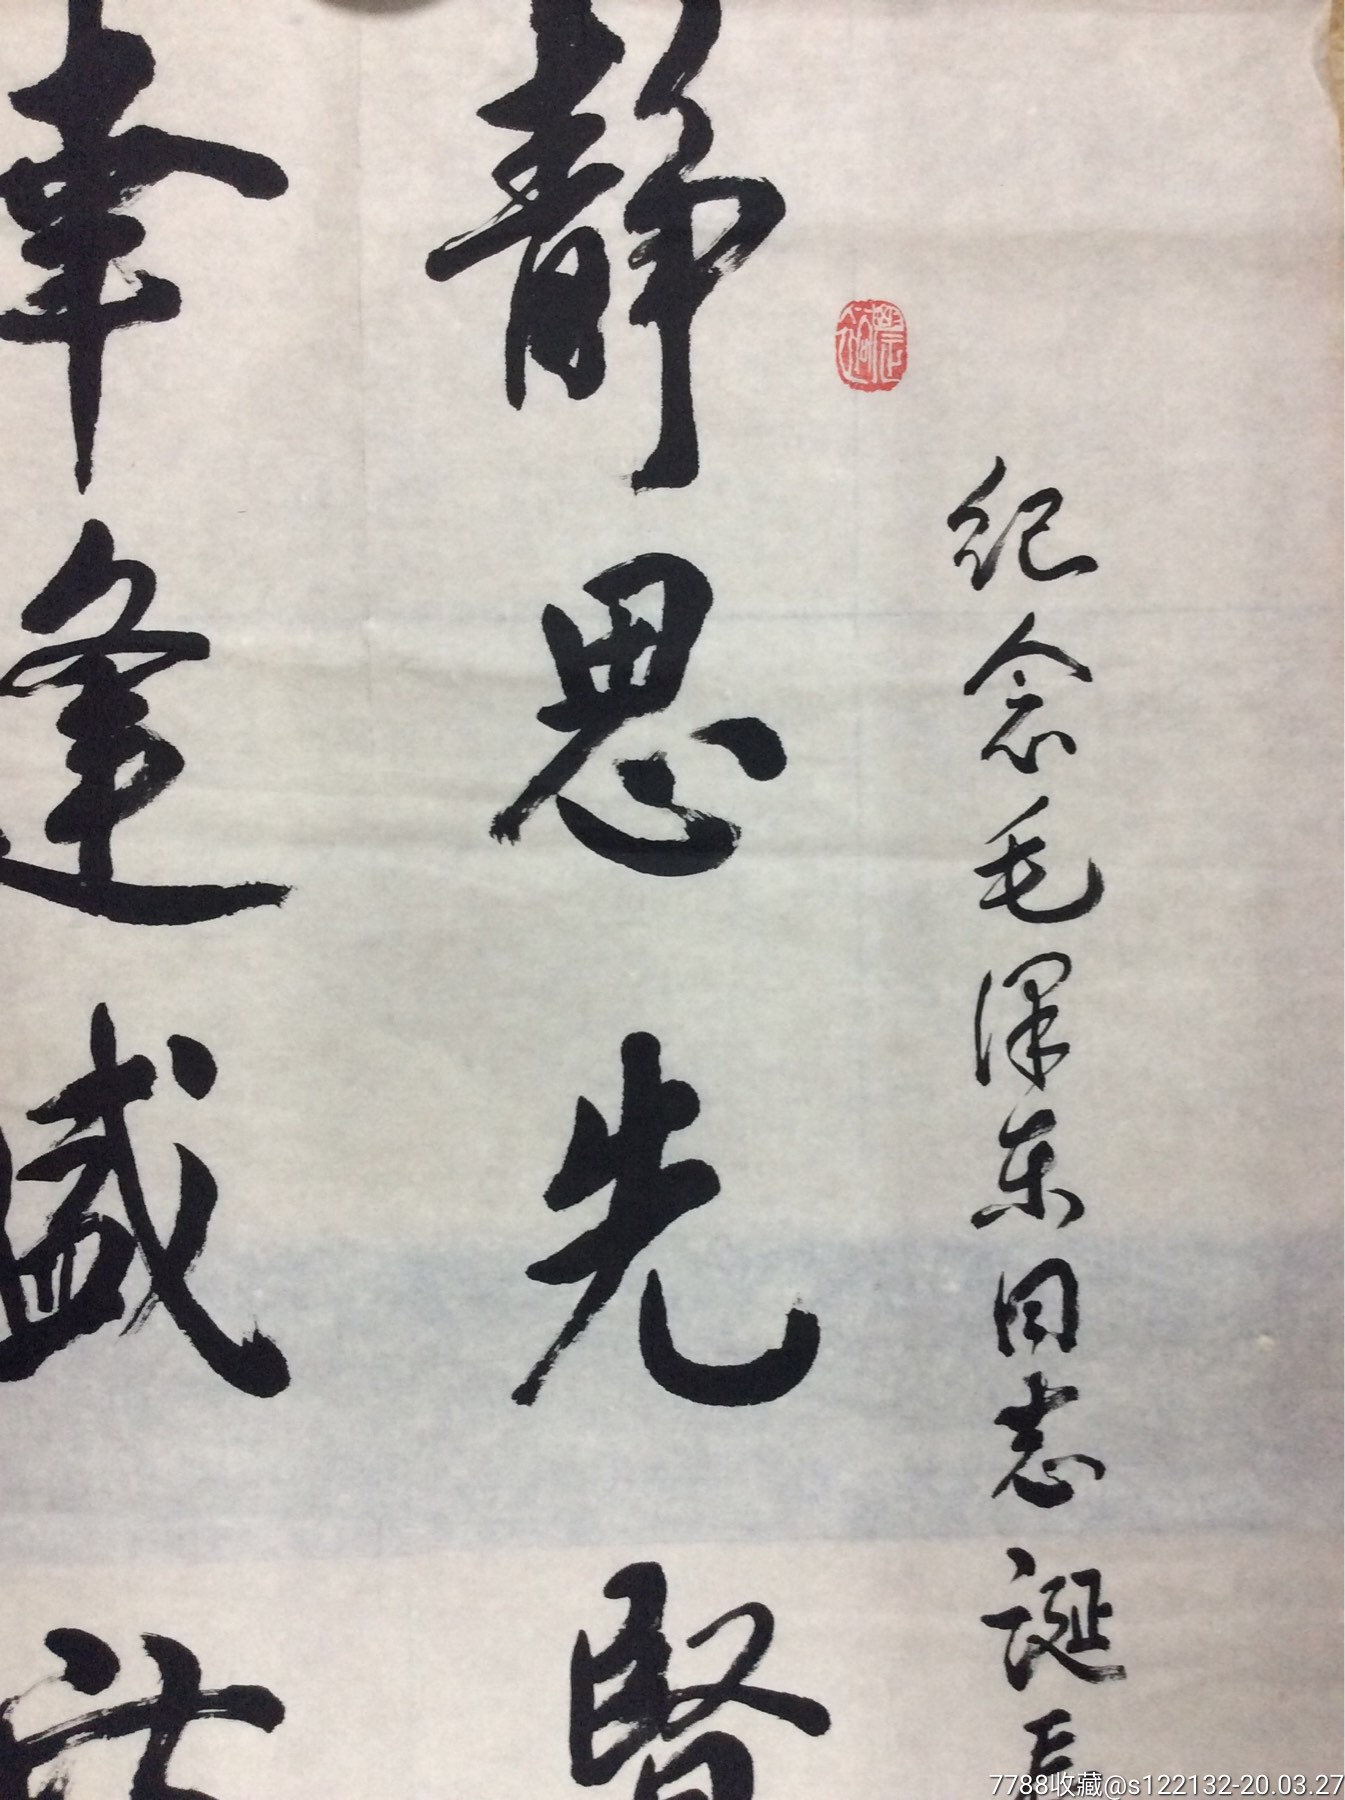 纪念毛泽东同志诞辰
静思先贤
幸逢盛世
7788收藏@s122132-20.03.27